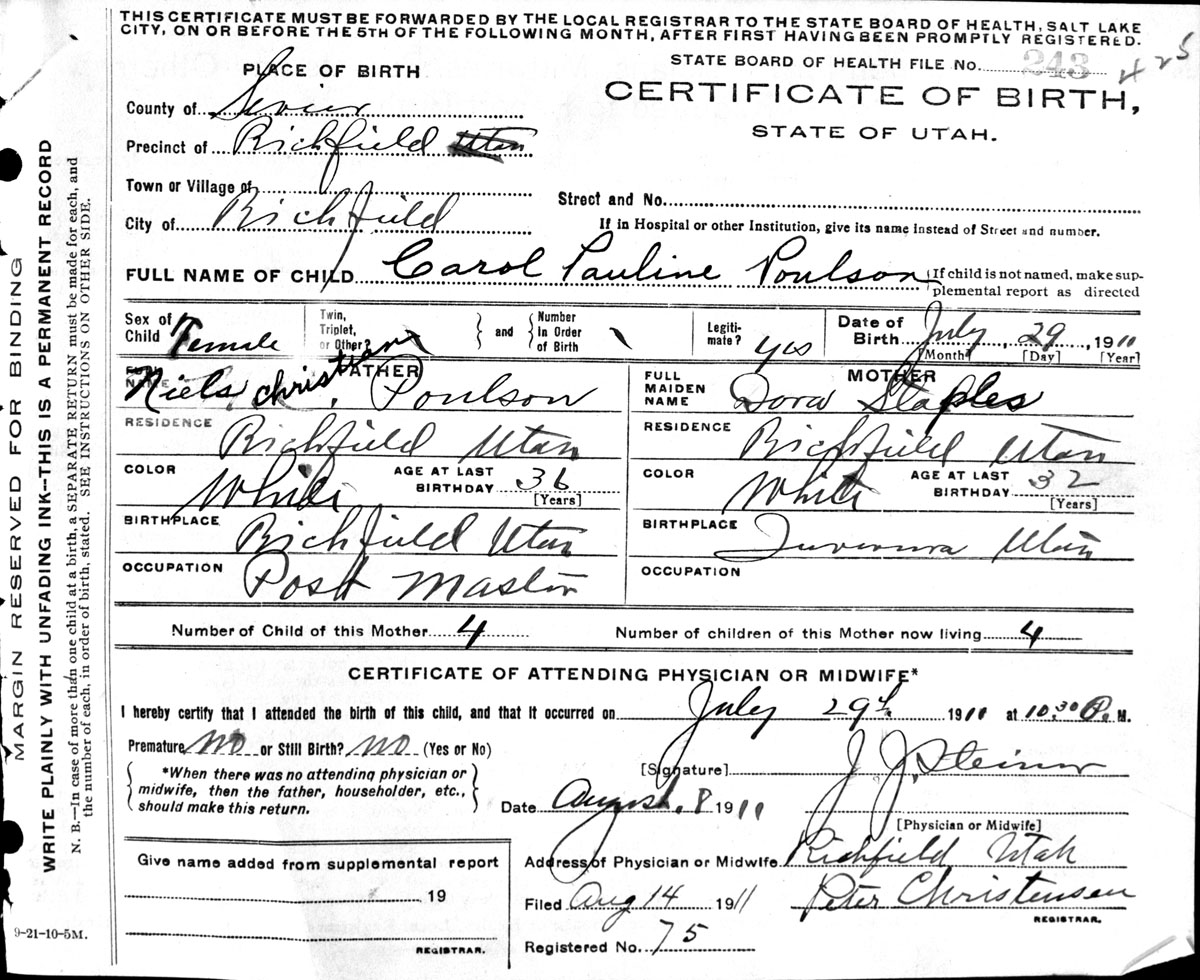 THIS CERTIFICATE MUST BE FORWARDED BY THE LOCAL REGISTRAR TO THE STATE BOARD OF HEALTH, SALT LAKE
CITY, ON OR BEFORE THE 5TH OF THE FOLLOWING MONTH, AFTER FIRST HAVING BEEN PROMPTLY REGISTERED.
STATE BOARD OF HEALTH FILE No. 243 425
PLACE OF BIRTH
CERTIFICATE OF BIRTH,
STATE OF UTAH.
County of Sevier
Precinct of Richfield Utah
Town or Village of
Street and No.
City of Richfield
If in Hospital or other Institution, give its name instead of Street and number.
FULL NAME OF CHILD Carol Pauline Poulson { If child is not named, make sup-
plemental report as directed
Sex of Child Female
Twin, Triplet, or Other? } and { Number in Order of Birth
Legiti-mate? yes
Date of Birth July, 29, 1911
[Month] [Day] [Year]
FATHER
FULL NAME Niels Christian Poulson
RESIDENCE Richfield Utah
COLOR White AGE AT LAST BIRTHDAY 36 [Years]
BIRTHPLACE Richfield Utah
OCCUPATION Post Master
MOTHER
FULL MAIDEN NAME Dora Staples
RESIDENCE Richfield Utah
COLOR White AGE AT LAST BIRTHDAY 32 [Years]
BIRTHPLACE Utah
OCCUPATION
Number of Child of this Mother 4 Number of children of this Mother now living 4
CERTIFICATE OF ATTENDING PHYSICIAN OR MIDWIFE*
I hereby certify that I attended the birth of this child, and that it occurred on July 29th 1911 at 10.30 P. M.
Premature No or Still Birth? No (Yes or No)
{ *When there was no attending physician or
midwife, then the father, householder, etc.,
should make this return. }
[Signature] J. J. Steiner
Date August 8 1911
[Physician or Midwife]
Address of Physician or Midwife Richfield Utah
Filed Aug 14 1911 Peter Christensen
REGISTRAR.
Registered No. 75
Give name added from supplemental report
19
REGISTRAR.
9-21-10-5M.
MARGIN RESERVED FOR BINDING
WRITE PLAINLY WITH UNFADING INK--THIS IS A PERMANENT RECORD
N. B.—In case of more than one child at a birth, a SEPARATE RETURN must be made for each, and
the number of each, in order of birth, stated. SEE INSTRUCTIONS ON OTHER SIDE.